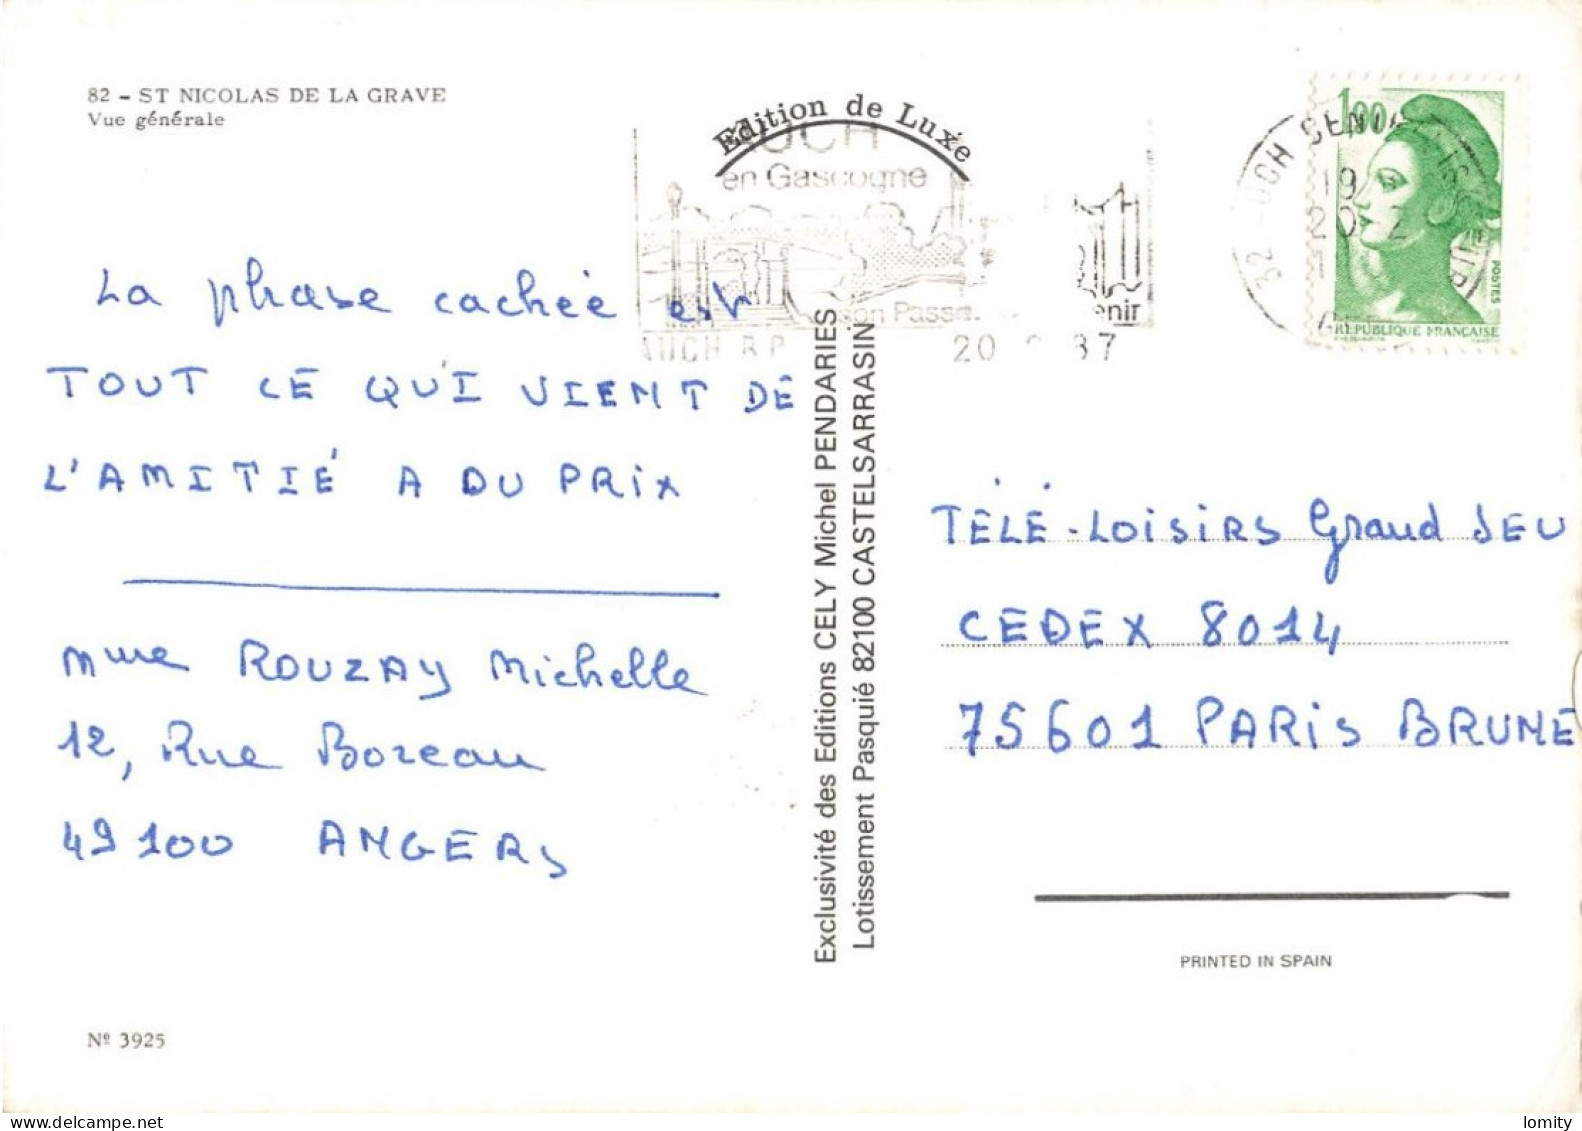 82 - ST NICOLAS DE LA GRAVE
Vue générale
Edition de Luxe
AUCH
en Gascogne
son Passé
enir
AUCH R.P.
20 87
32 - UCH
19
20
1.00
POSTES
REPUBLIQUE FRANÇAISE
La phrase cachée est
TOUT CE QUI VIENT DE
L'AMITIÉ A DU PRIX
Mme ROUZAY Michelle
12, Rue Bozeau
49100 ANGERS
Exclusivité des Editions CELY Michel PENDARIES
Lotissement Pasquié 82100 CASTELSARRASIN
TÉLÉ-LOISIRS Grand JEU
CEDEX 8014
75601 PARIS BRUNE
PRINTED IN SPAIN
Nº 3925
lomity